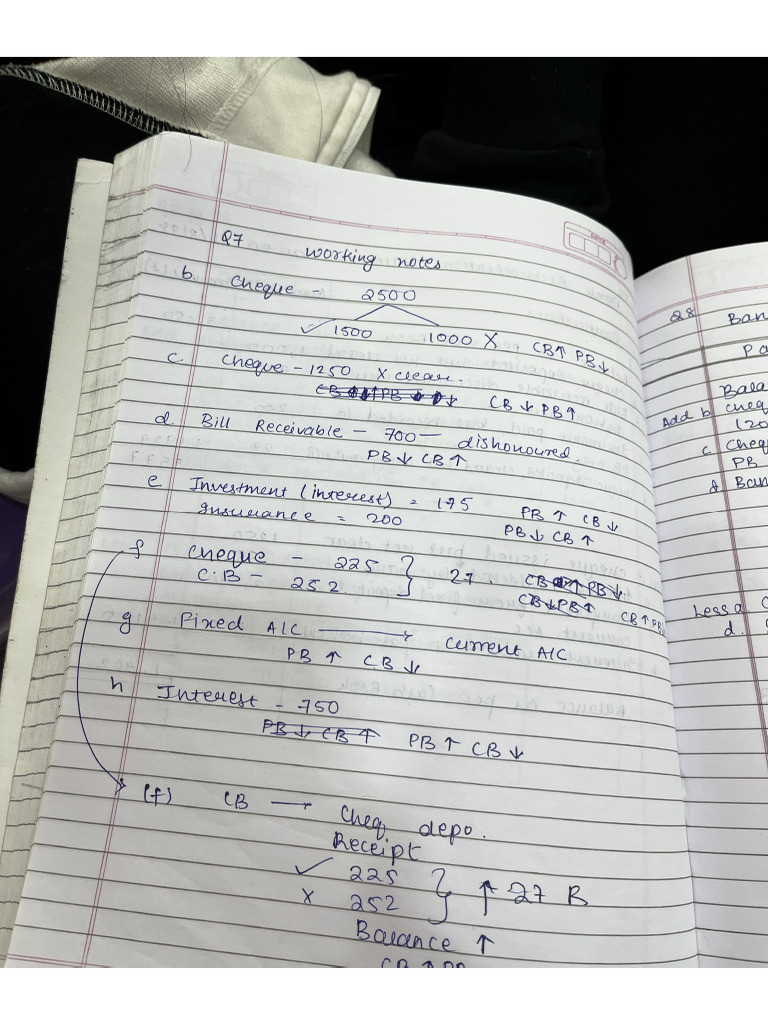 Q7 Working notes
b. Cheque - 2500
✓ 1500 1000 X CB↑ PB↓
c. Cheque - 1250 X clear.
CB ↓ PB↑
d. Bill Receivable - 700 - dishonoured.
PB↓ CB↑
e Investment (interest) = 175 PB ↑ CB ↓
Insurance = 200 PB↓ CB ↑
f cheque - 225 } 27 CB ↑ PB↓
C.B - 252. CB↓PB↑ CB↑PB
g Fixed A/C → Current A/C
PB ↑ CB ↓
h Interest - 750
PB ↓ CB ↑ PB↑ CB ↓
(f) CB → Cheq. depo.
Receipt
✓ 225 } ↑ 27 R
X 252
Balance ↑
CB ↑ PB
Q8 Ban
Pa
Bala
Add b cheq
(20
c Cheq
PB
d Ban
Less a
d.